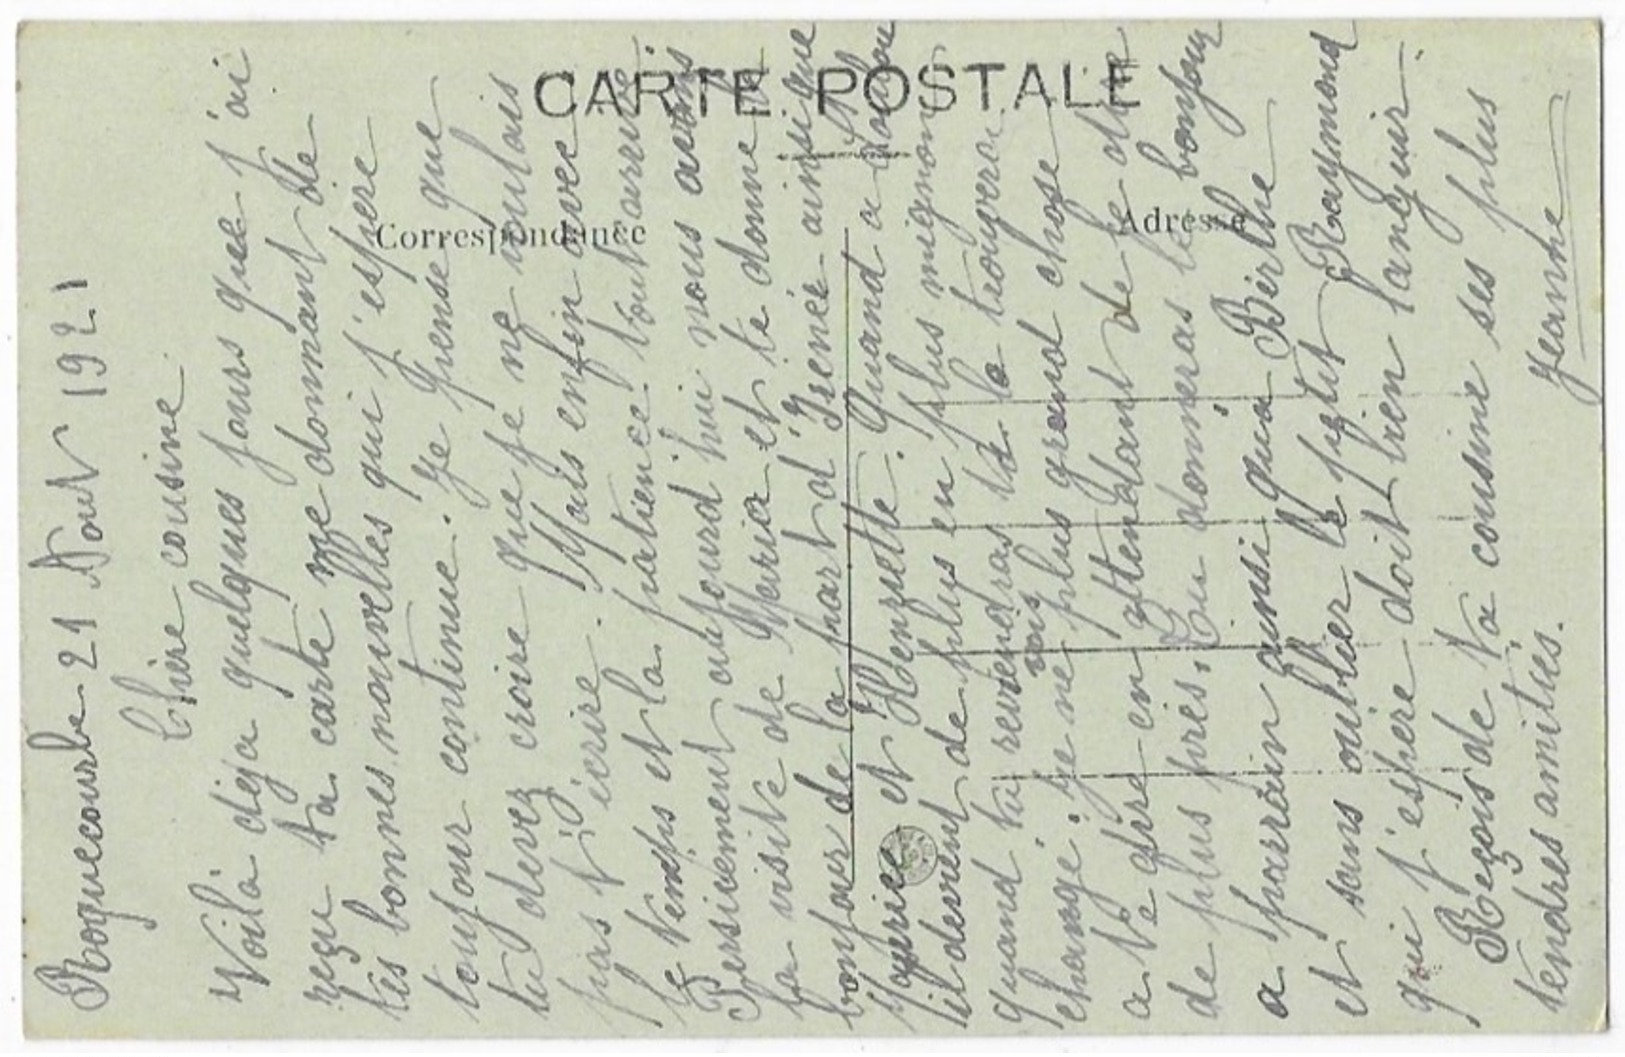 CARTE POSTALE
Correspondance
Adresse
Roquecourbe 21 Aout 1921
Chère cousine
Voilà déja quelques jours que j'ai
reçu ta carte me donnant de
tes bonnes nouvelles qui j'espère
toujour continue. Je pense que
tu devez croire que je ne voulais
pas t'écrire. Mais enfin avec
le temps et la patience tout arrive.
Persivement aujourd hui nous avons
la visite de Maria et te donne le
bonjour de la part d'Irenée ainsi que
Maurice et Henriette. Quand a
il devient de plus en plus mignon
quand tu reviendras tu la trouvera
changé. je ne vois plus grand chose
a te dire en attendant de te dire
de plus près. Tu donneras le bonjour
a parrain ainsi qua Berthe
et sans oublier le petit Raymond
qui j'espère doit bien languir.
Reçois de ta cousine ses plus
tendres amitiés.
Jeanne